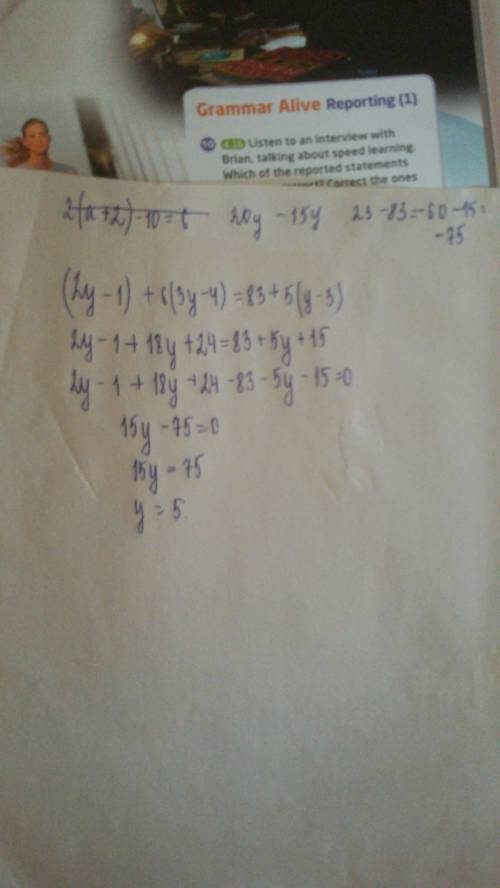 Grammar Alive Reporting (1)
10 4.16 Listen to an interview with
Brian, talking about speed learning.
Which of the reported statements
Correct the ones
2(a+2)-10=6 20y - 15y 23-83=-60-15=
-75
(2y-1)+6(3y-4)=83+5(y-3)
2y-1+18y+24=83+5y+15
2y-1+18y+24-83-5y-15=0
15y-75=0
15y=75
y=5.